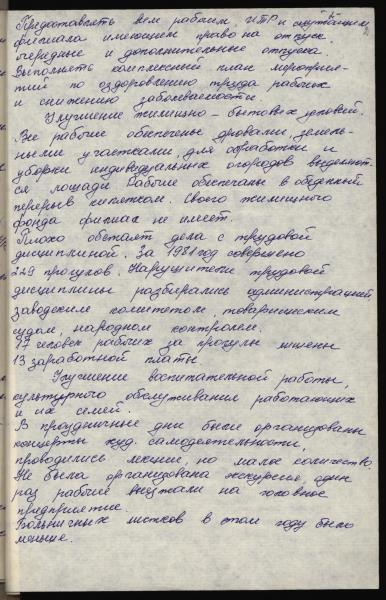 Предоставлять всем рабочим, ИТР и служащим
филиала имеющим право на отпуск
очередные и дополнительные отпуска.
Выполнять комплексный план мероприя-
тий по оздоровлению труда рабочих
и снижению заболеваемости.
Улучшение жилищно-бытовых условий.
Все рабочие обеспечены дровами, земель-
ными участками, для обработки и
уборки индивидуальных огородов выделяют-
ся лошади. Рабочие обеспечены в обеденный
перерыв кипятком. Своего жилищного
фонда филиал не имеет.
Плохо обстоят дела с трудовой
дисциплиной. За 1981 год совершено
229 прогулов. Нарушители трудовой
дисциплины разбирались администрацией
заводским комитетом, товарищеским
судом, народном контролем.
17 человек рабочих за прогулы лишены
13 заработной платы
Улучшение воспитательной работы,
культурного обслуживания работающих
и их семей.
В праздничные дни были организованы
концерты худ. самодеятельности,
проводились лекции, но малое количество.
Не была организована экскурсия, один
раз рабочие выезжали на головное
предприятие.
Больничных листков в этом году было
меньше.